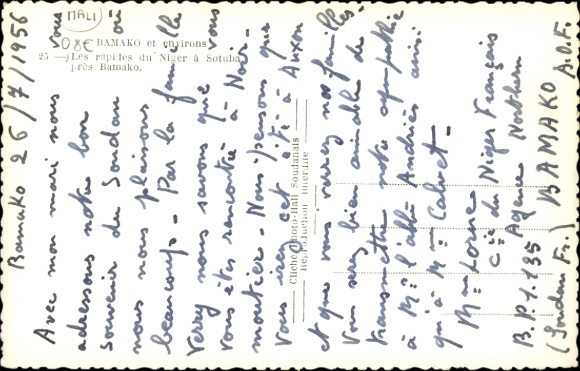 MALI
0.8€
BAMAKO et environs
25 — Les rapides du Niger à Sotuba
près Bamako.
Cliché Photo-Hall Soudanais
Reproduction interdite
Bamako 26/7/1956
Avec mon mari nous vous
adressons notre bon
Souvenir du Soudan où
nous nous plaisons
beaucoup. Par la famille
Verry nous savons que vous
vous êtes rencontré à Noir-
moutier. Nous pensons que
Vous irez cet été à
et que vous verrez nos familles.
Vous serez bien aimable de
transmettre notre sympathie
à Mr l'abbé Andriès ainsi
qu'à Mme Calvet.
Mme Lorne
Cie du Niger Français
Agence Northern
B.P. 1.135 BAMAKO
(Soudan Fs.) A.O.F.